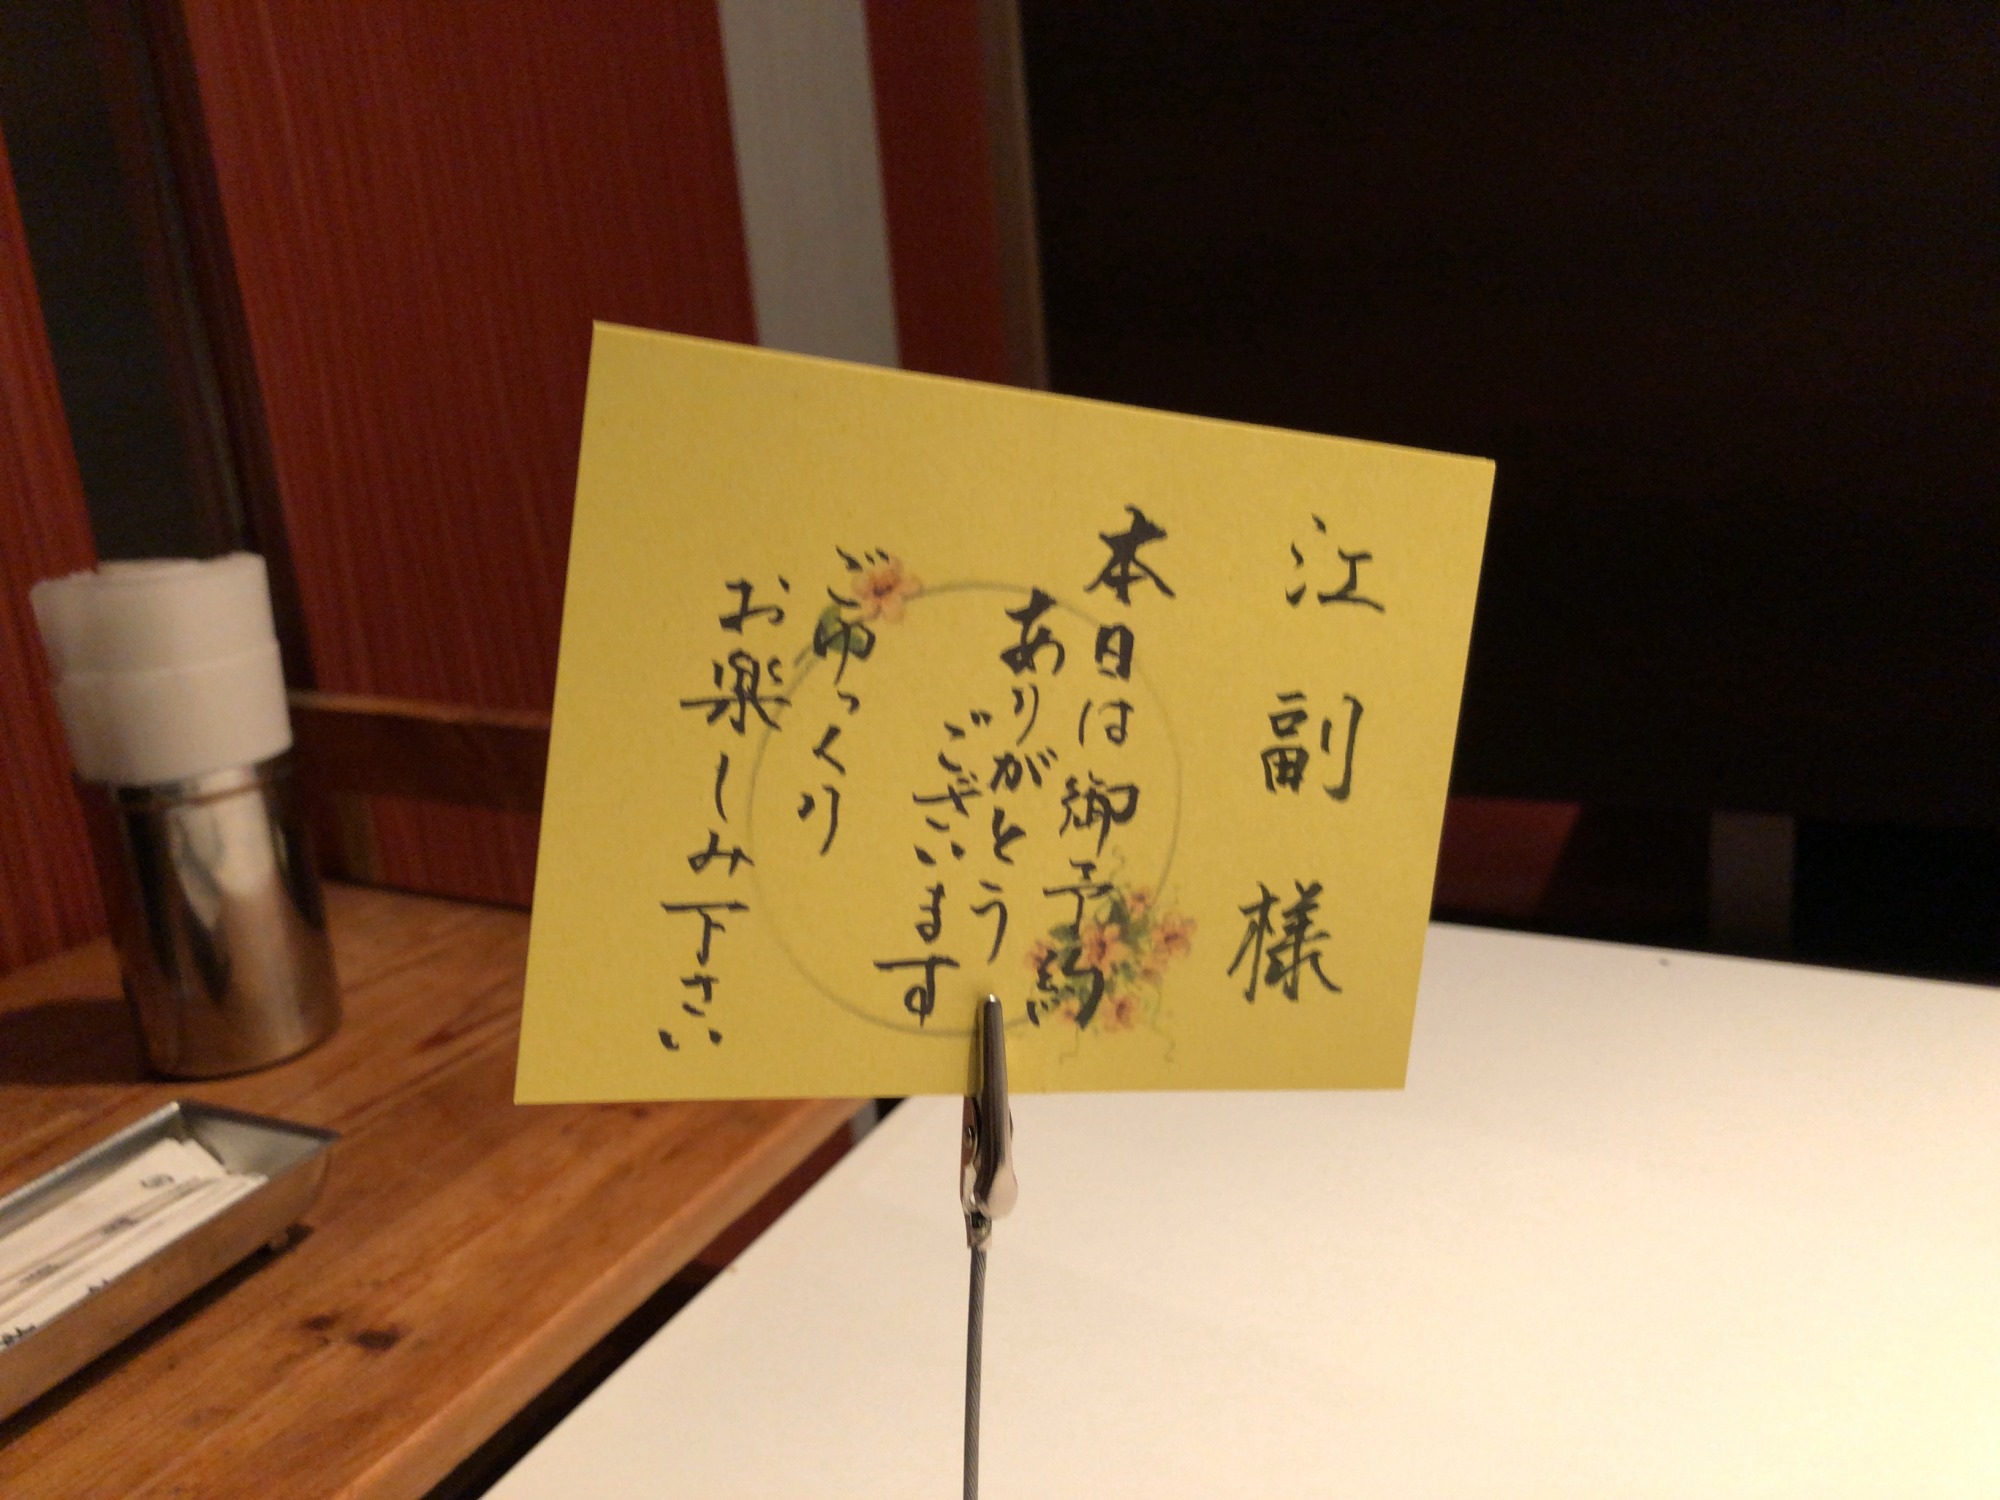 江副様
本日は御予約
ありがとう
ございます
ごゆっくり
お楽しみ下さい